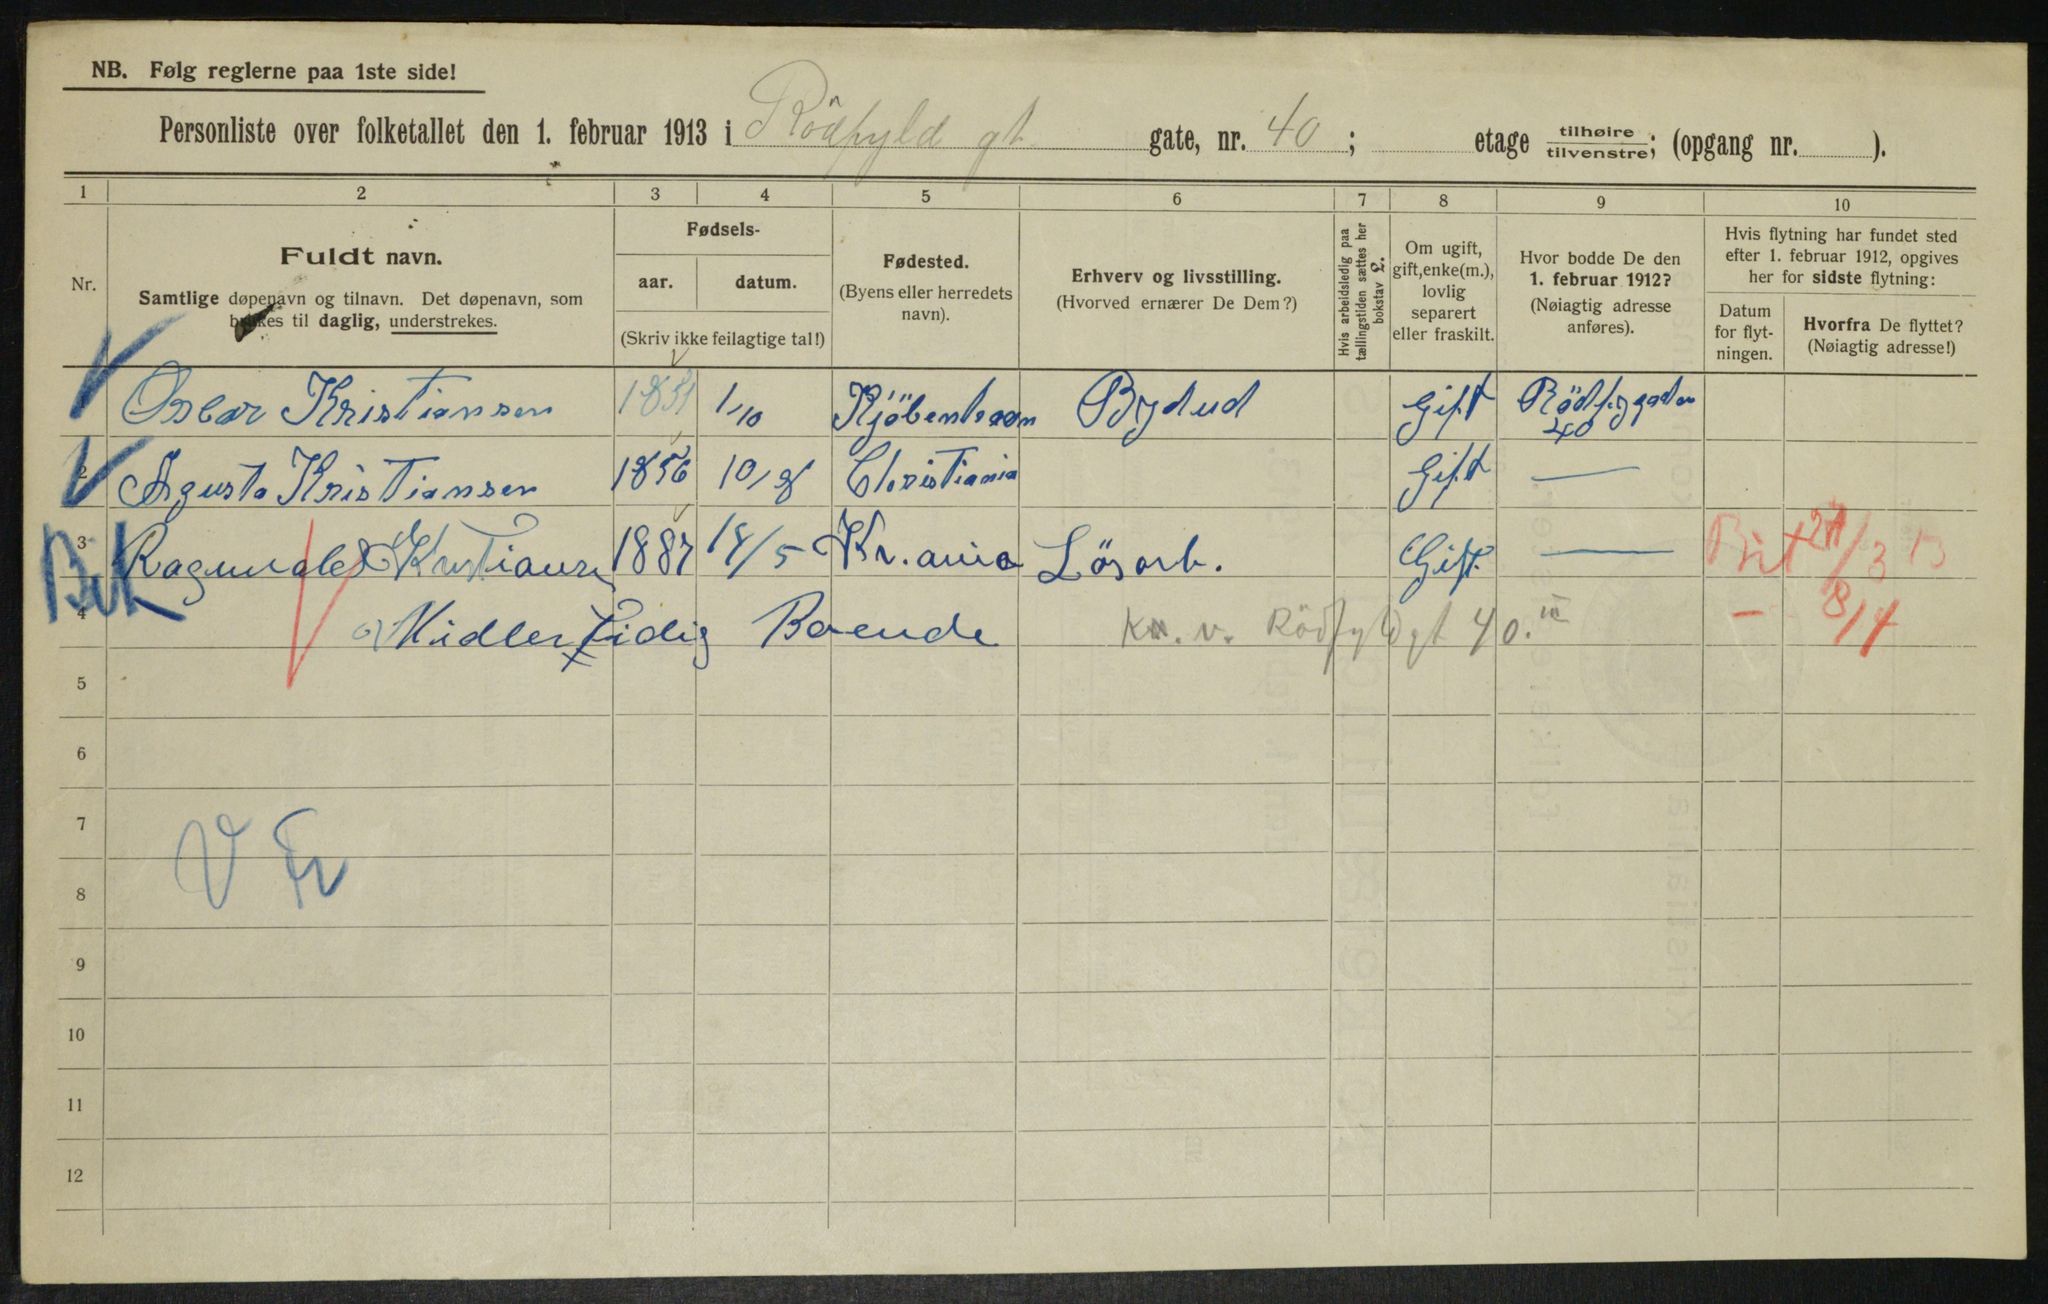 NB. Følg reglerne paa 1ste side!
Personliste over folketallet den 1. februar 1913 i Rödfyld gt. gate, nr. 40; etage tilhøire/tilvenstre; (opgang nr. ).
1 2 3 4 5 6 7 8 9 10
Nr.
Fuldt navn.
Samtlige døpenavn og tilnavn. Det døpenavn, som
brukes til daglig, understrekes.
Fødsels-
aar. datum.
(Skriv ikke feilagtige tal!)
Fødested.
(Byens eller herredets
navn).
Erhverv og livsstilling.
(Hvorved ernærer De Dem?)
Hvis arbeidsledig paa
tællingstiden sættes her
bokstav L.
Om ugift,
gift, enke(m.),
lovlig
separert
eller fraskilt.
Hvor bodde De den
1. februar 1912?
(Nøiagtig adresse
anføres).
Hvis flytning har fundet sted
efter 1. februar 1912, opgives
her for sidste flytning:
Datum
for flyt-
ningen.
Hvorfra De flyttet?
(Nøiagtig adresse!)
Oscar Kristiansen 1851 1/10 Kjöbenhavn Bydud Gift Rödfygaden
40
2 Agusta Kristiansen 1856 10/8 Christiania Gift —
3 Kristiansen 1887 14/5 Kr.ania Lösarb. Gift —
4 Midlertidig Boende Rödfyldgt 40. 8/4
5
6
7
8
9
10
11
12